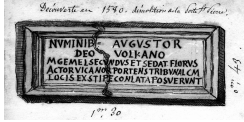 Découverte en 1540. démolition a la porte St. Pierre.
NVMINIB AVGVSTOR
DEO VOLKANO
M GEMEL SECVNDVS ET SEDAT FIORVS
ACTOR VICANOR PORTENS TRIBVNALCM
LOCIS EX STIPE CONLATA POSVERVNT